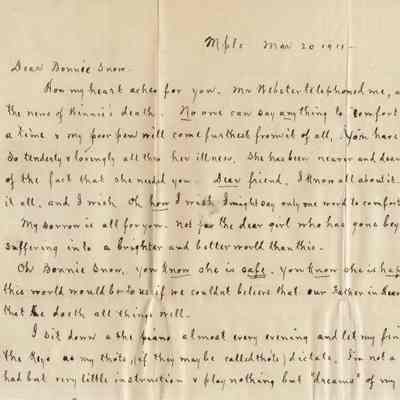 Mpls Mar 20 1911-
Dear Bonnie Snow.
How my heart aches for you. Mr Webster telephoned me, a
the news of Minnie's death. No one can say anything to comfort
a time & my poor pen will come furthest from it of all. You have
so tenderly & lovingly all thro her illness. She has been nearer and dear
of the fact that she needed you. Dear friend, I know all about it
it all, and I wish Oh how I wish I might say only one word to comfort
My sorrow is all for you - not for the dear girl who has gone bey
suffering into a brighter and better world than this.
Oh Bonnie Snow, you know she is safe. You know she is hap
this world would be to us if we couldnt believe that our Father in Heav
that He doeth all things well.
I sit down a the piano almost every evening and let my fin
the keys as my thots, (if they may be called thots) dictate. I'm not a
had but very little instruction & play nothing but "dreams" of my